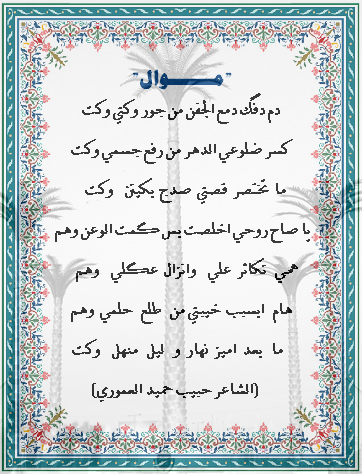 "مـــوال"
دم دفگ دمع الجفن من جور وكتي وكت
كسر ضلوعي الدهر من رفع جسمي وكت
ما تختصر قصتي صدج بكيتن وكت
يا صاح روحي اخلصت بس گمت الوعن وهم
همي تكاثر علي وانزال عگلي وهم
هام ابسبب خيبتي من طلع حلمي وهم
ما بعد اميز نهار و ليل منهل وكت
(الشاعر حبيب حميد العموري)